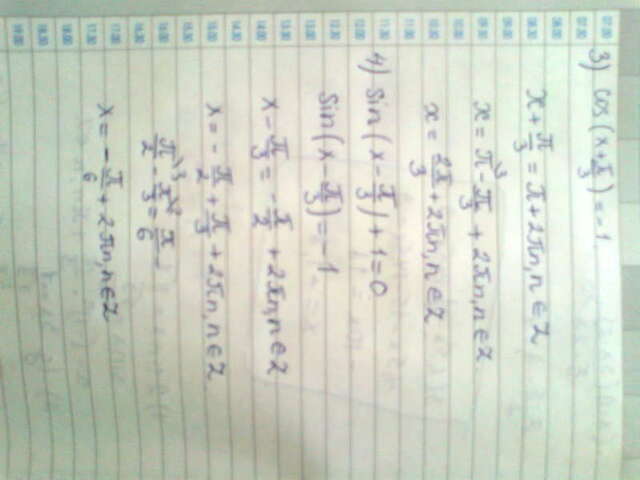 3) cos(x+π/3)=-1
x+π/3=π+2πn,n∈Z
x=π-π/3+2πn,n∈Z
x=2π/3+2πn,n∈Z
4) sin(x-π/3)+1=0
sin(x-π/3)=-1
x-π/3=-π/2+2πn,n∈Z
x=-π/2+π/3+2πn,n∈Z
π/2-π/3=π/6
x=-π/6+2πn,n∈Z